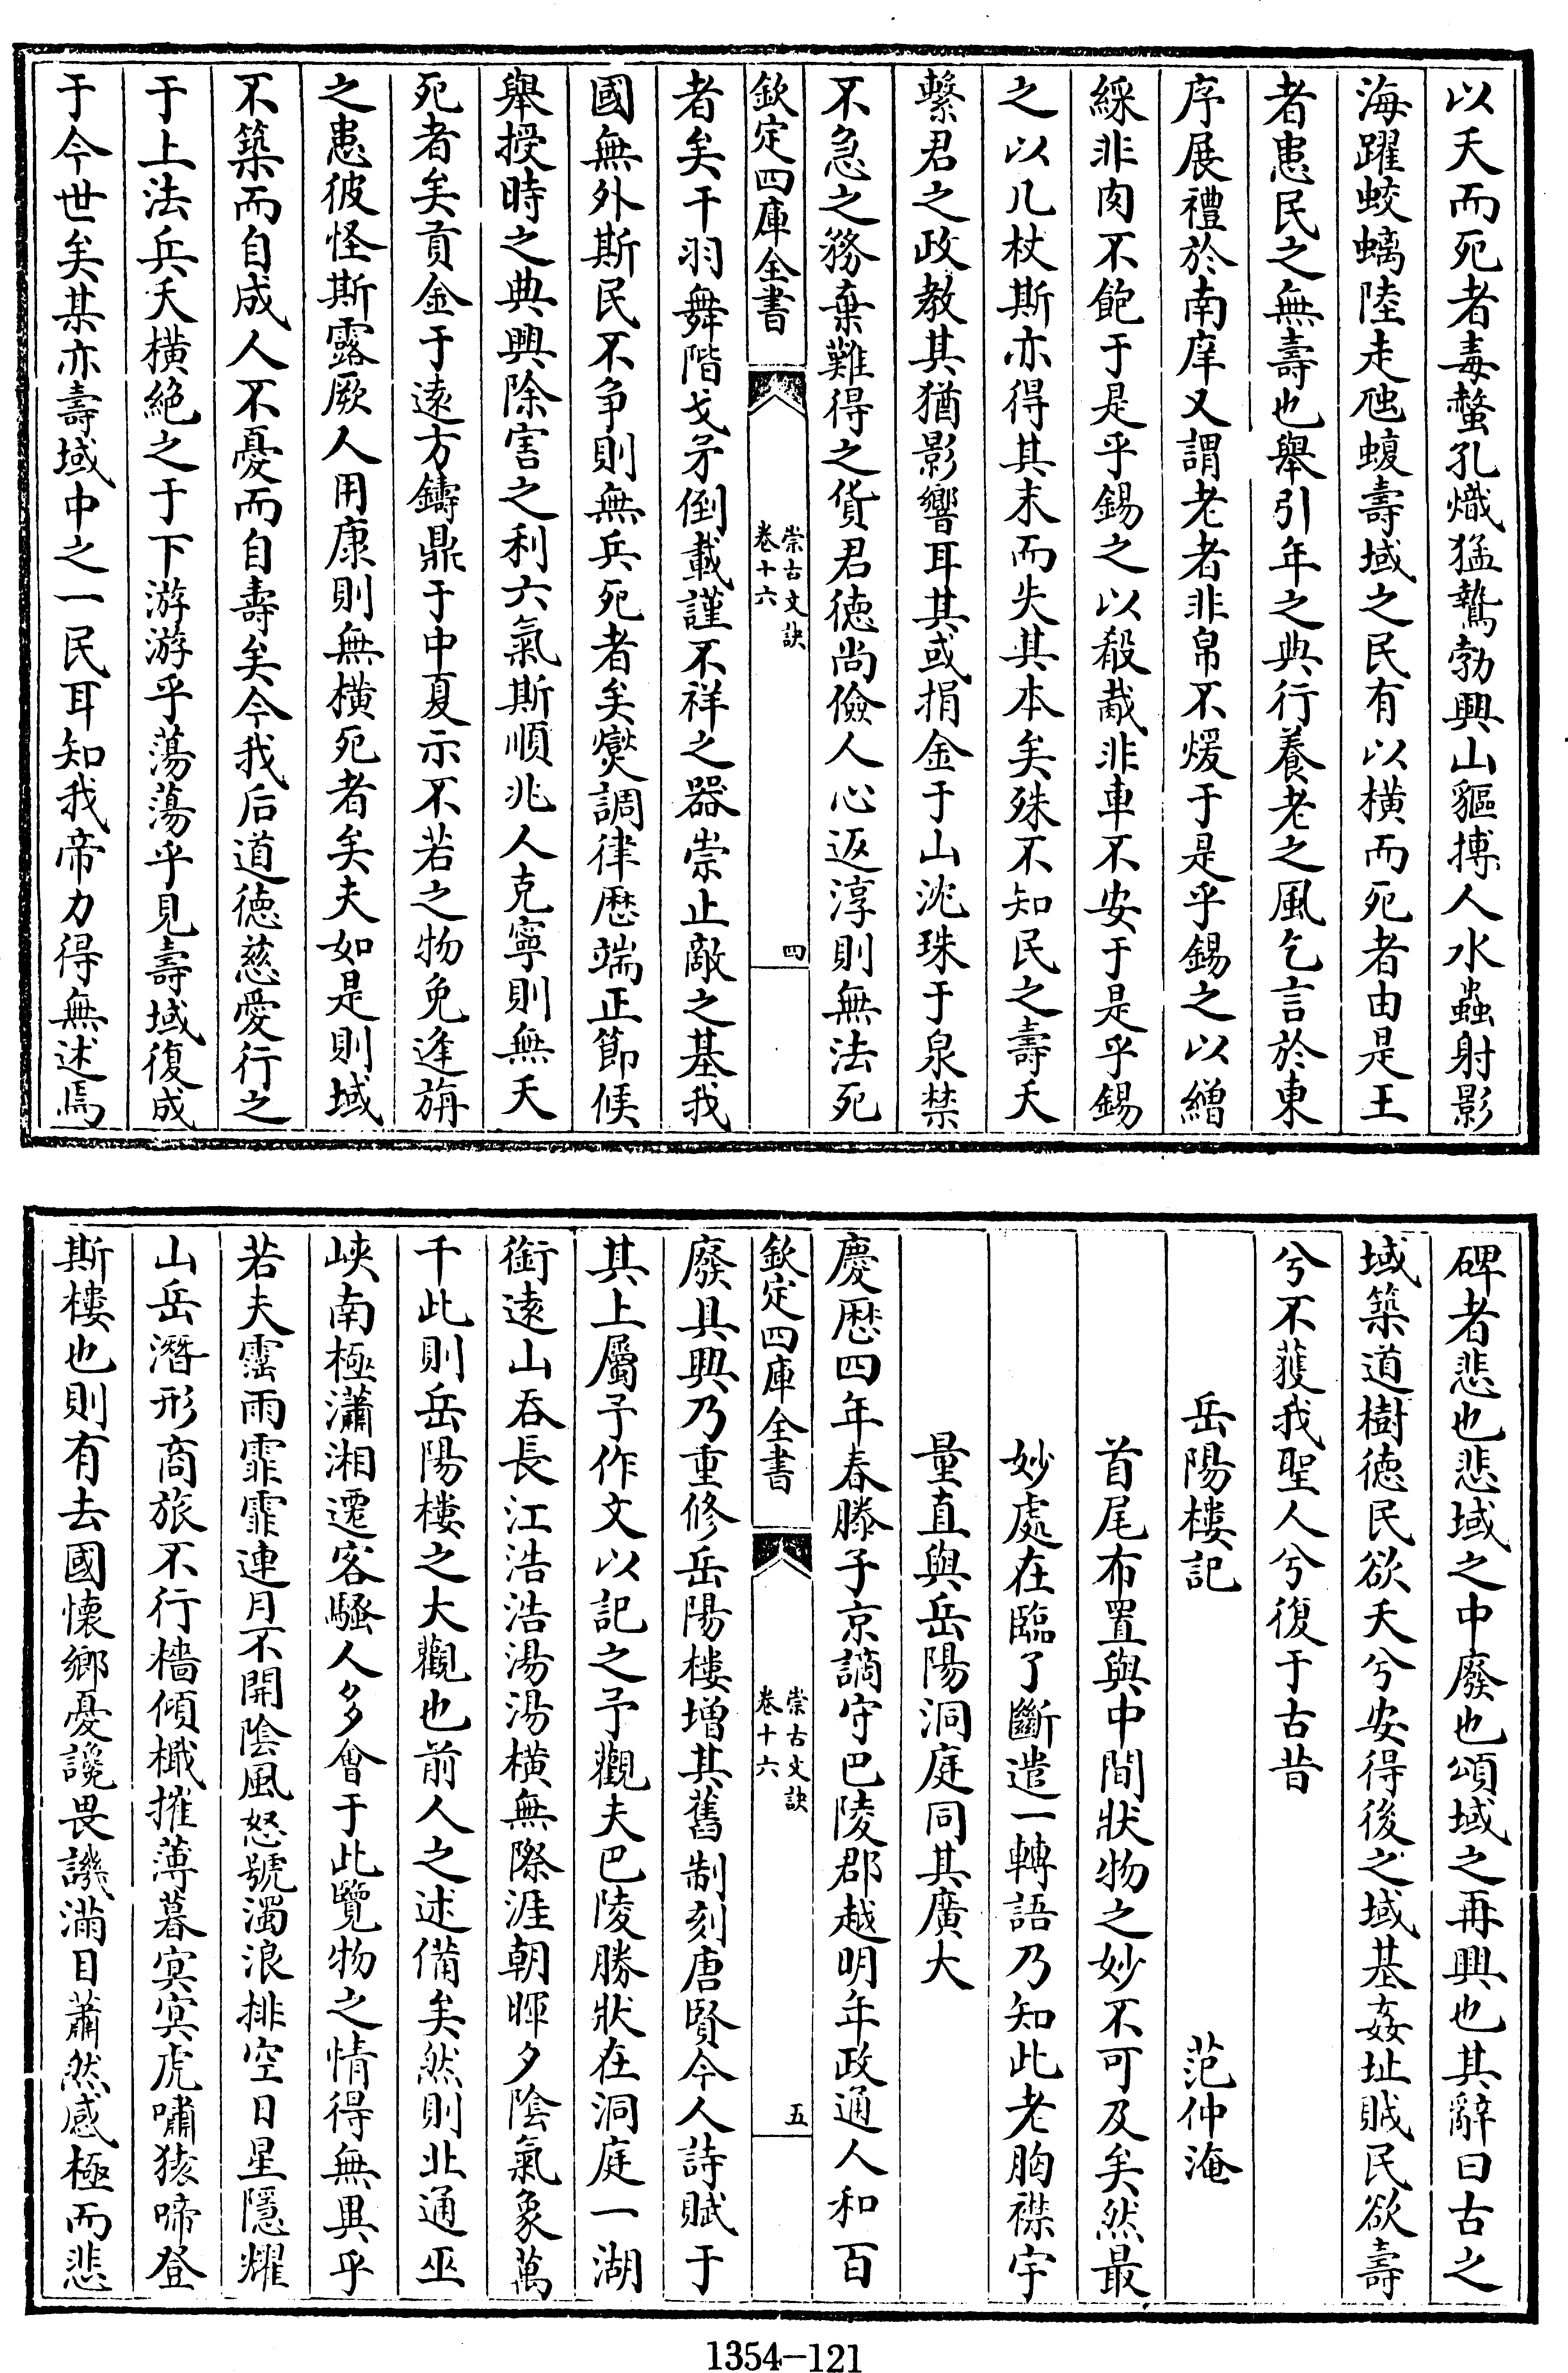 以夭而死者毒螫孔熾猛鷙勃興山貙搏人水蟲射影
海躍蛟螭陸走虺蝮壽域之民有以橫而死者由是王
者患民之無壽也舉引年之典行養老之風乞言於東
序展禮於南庠又謂老者非帛不煖于是乎錫之以繒
綵非肉不飽于是乎錫之以殽胾非車不安于是乎錫
之以几杖斯亦得其末而失其本矣殊不知民之壽夭
繫君之政教其猶影響耳其或捐金于山沈珠于泉禁
不急之務棄難得之貨君徳尚儉人心返淳則無法死
欽定四庫全書
崇古文訣
卷十六
四
者矣干羽舞階戈矛倒載謹不祥之器崇止敵之基我
國無外斯民不争則無兵死者矣爕調律厯端正節候
舉授時之典興除害之利六氣斯順兆人克寧則無夭
死者矣貢金于遠方鑄鼎于中夏示不若之物免逢旃
之患彼怪斯露厥人用康則無橫死者矣夫如是則域
不築而自成人不憂而自壽矣今我后道徳慈愛行之
于上法兵夭橫絶之于下游游乎蕩蕩乎見壽域復成
于今世矣某亦壽域中之一民耳知我帝力得無述焉
碑者悲也悲域之中廢也頌域之再興也其辭曰古之
域築道樹徳民欲夭兮安得後之域基姦址賊民欲壽
兮不獲我聖人兮兮復于古昔
岳陽樓記
范仲淹
首尾布置與中間狀物之妙不可及矣然最
妙處在臨了斷遣一轉語乃知此老胸襟宇
量直與岳陽洞庭同其廣大
慶厯四年春滕子京謫守巴陵郡越明年政通人和百
欽定四庫全書
崇古文訣
卷十六
五
廢具興乃重修岳陽樓增其舊制刻唐賢今人詩賦于
其上屬予作文以記之予觀夫巴陵勝狀在洞庭一湖
銜逺山吞長江浩浩湯湯橫無際涯朝暉夕陰氣象萬
千此則岳陽樓之大觀也前人之述備矣然則北通巫
峽南極瀟湘遷客騷人多㑹于此覽物之情得無異乎
若夫霪雨霏霏連月不開陰風怒號濁浪排空日星隱耀
山岳潛形商旅不行檣傾檝摧薄暮冥冥虎嘯猿啼登
斯樓也則有去國懷鄉憂讒畏譏滿目蕭然感極而悲
1354-121